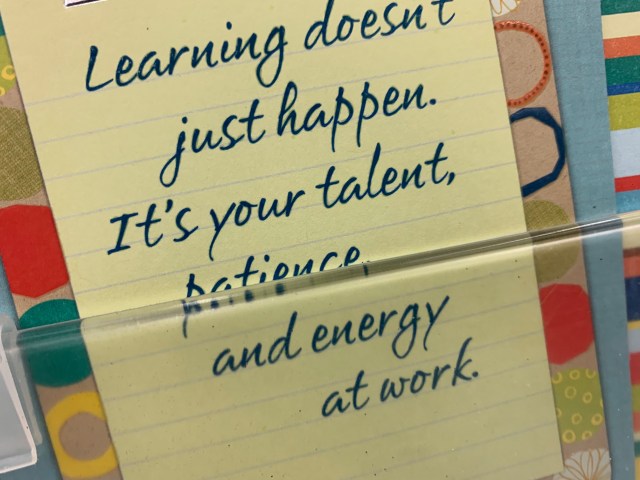 Learning doesn't
just happen.
It's your talent,
patience,
and energy
at work.